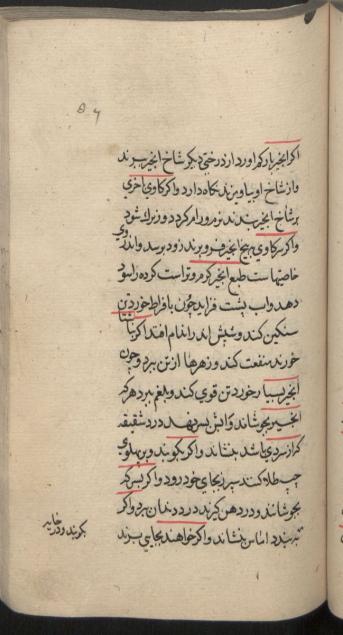 ۵۶
اکر انجیر بار کم اورد از درختی دیکر شاخ انجیر ببرند
و از شاخ او بیاویزند نکاه دارد و اکر کاوی
بر شاخ انجیر بندند نرم و رام کردد و زیرک شود
و اکر سرکاوی بیخ انجیر فرو برند زود برسد و اندر وی
خاصیتهاست طبع انجیر کرم و تر است کرده را سود
دهد و اب پشت فزاید چون بافراط خورد تن
سنکین کند و شپش اندر اندام افتد اکر ناشتا
خورند منفعت کند و زهرها از تن ببرد و چون
انجیر بسیار خورد تن قوی کند و بلغم ببرد هر که
انجیر بجوشاند و ابش بسر نهد درد شقیقه
کز سردی باشد بنشاند و اکر بکوبند و بر پهلوی
چپ طلا کنند سپرز بجای خود رود و اکر بسرکه
بجوشاند و در دهن کیرند درد دندان ببرد و اکر
بندد اماس بنشاند و اکر خواهند بجایی برند
کویند و در خایه